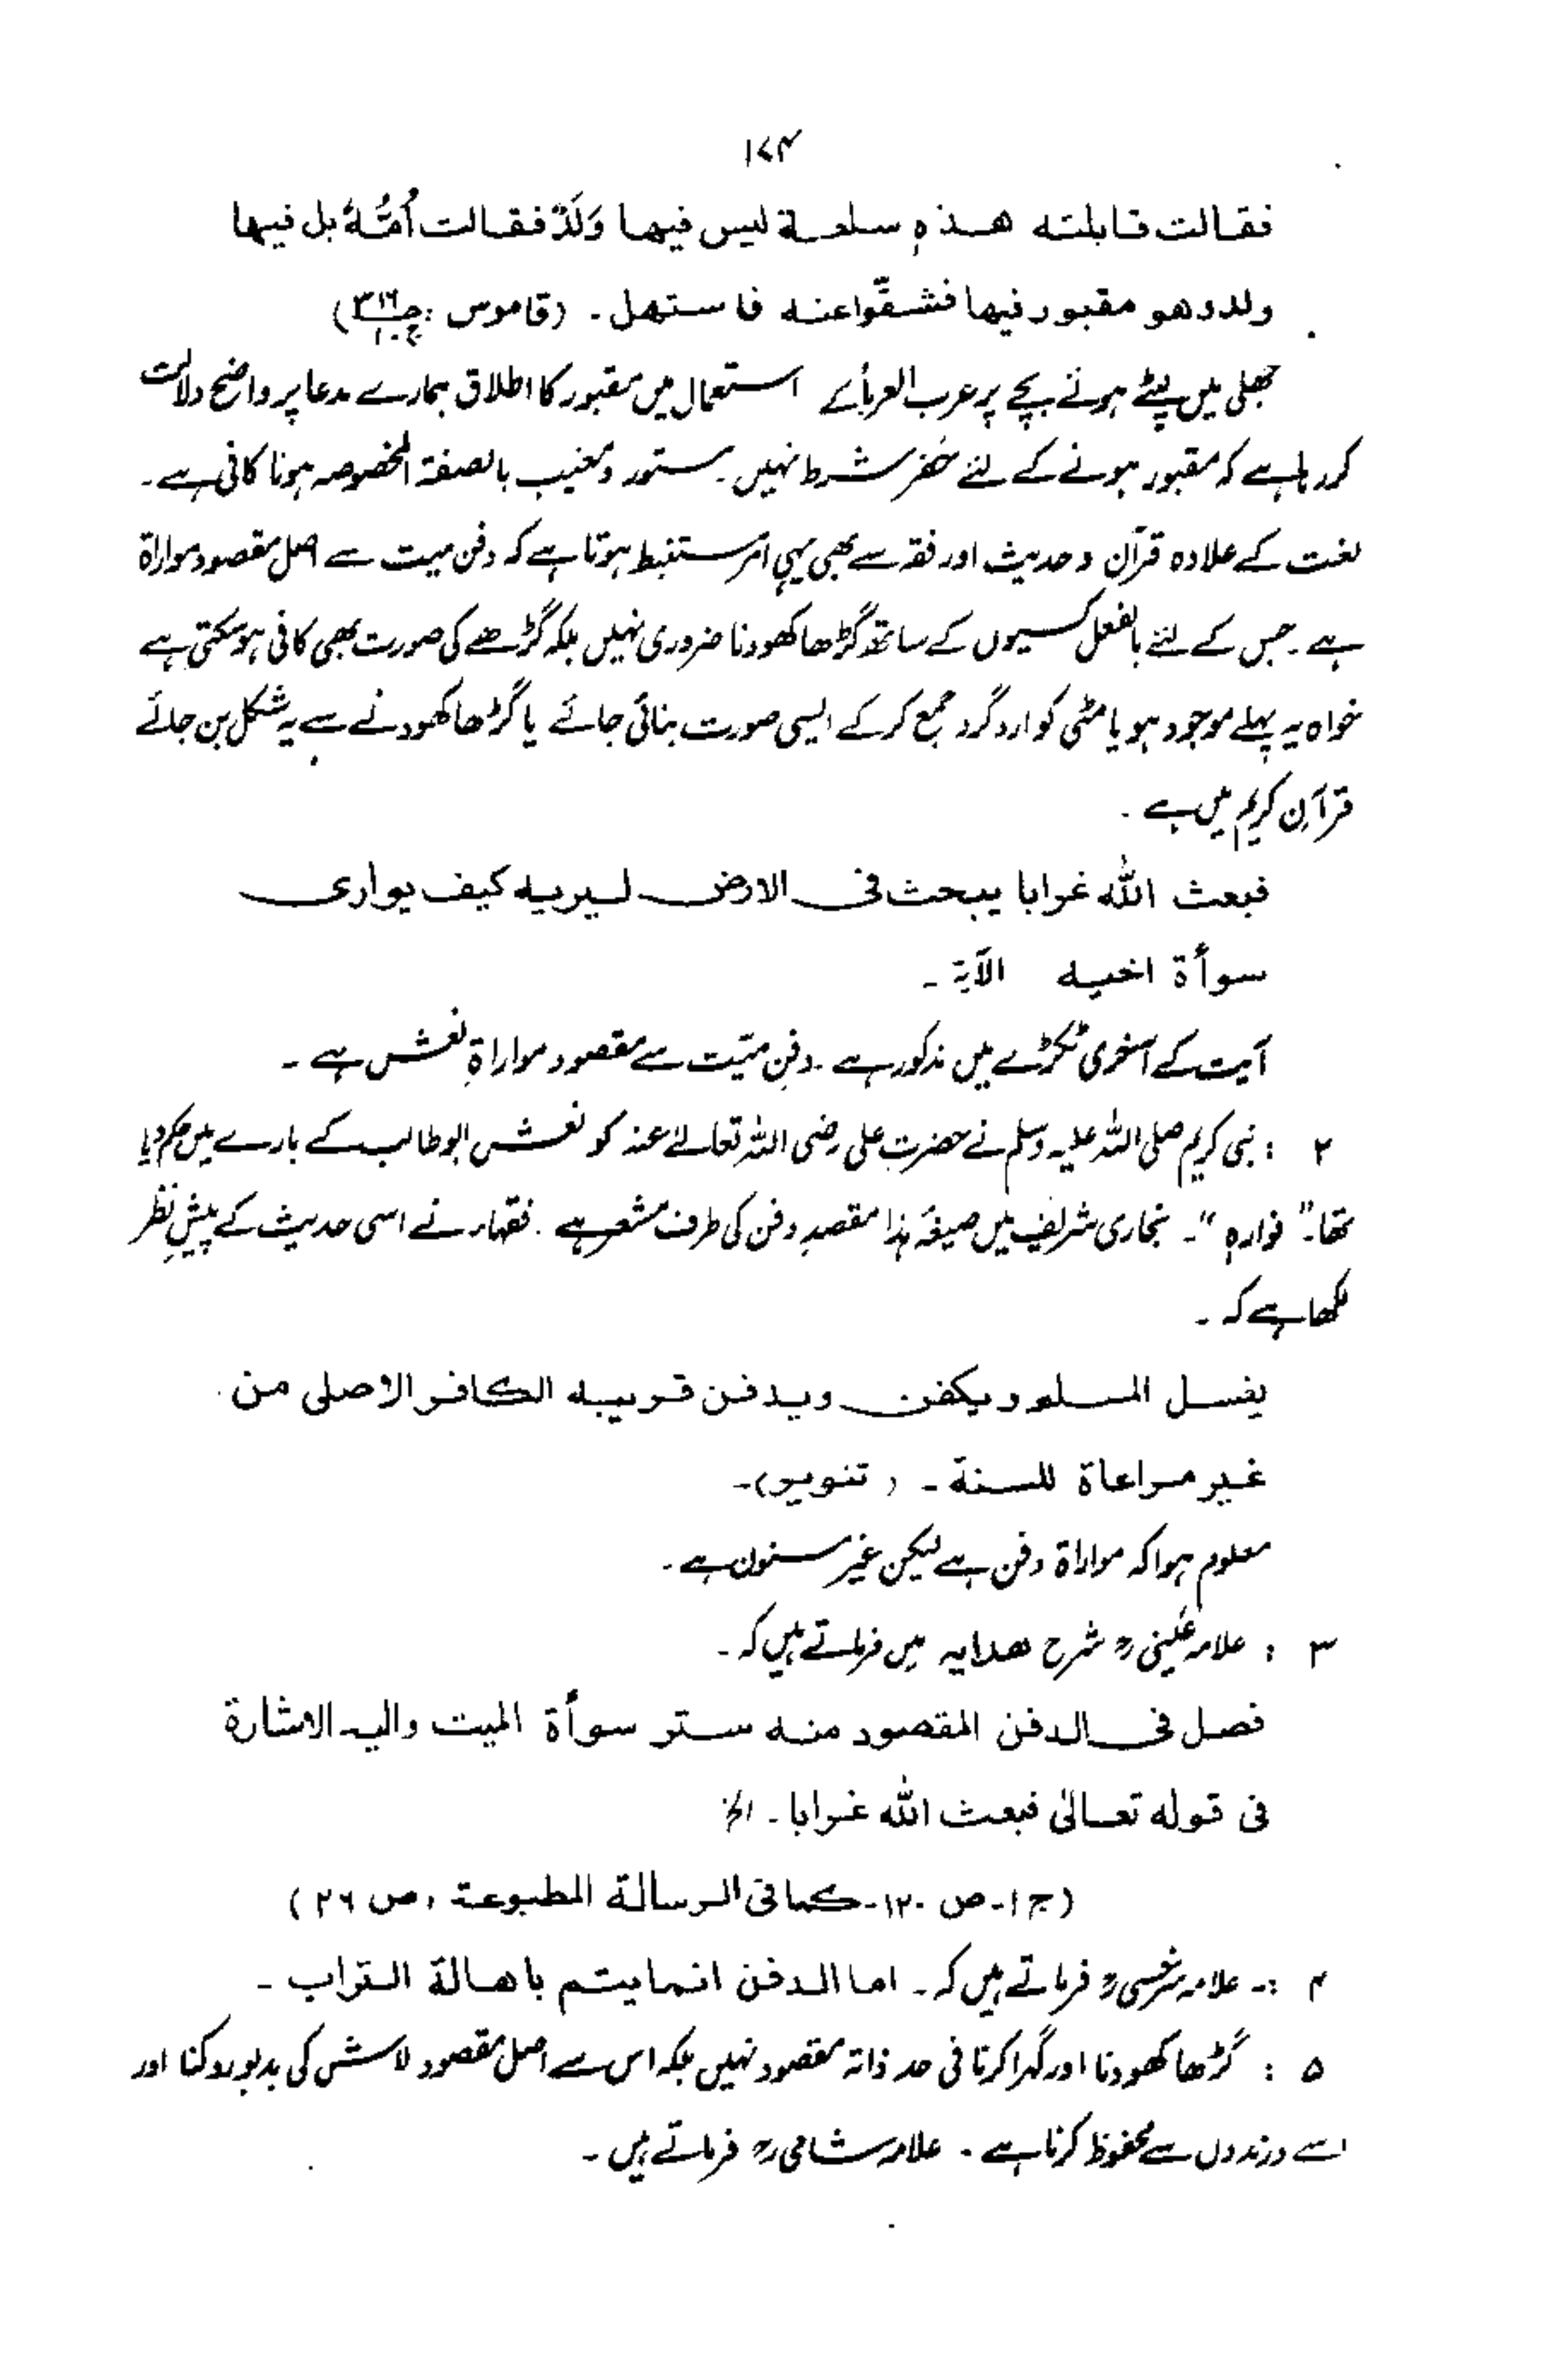 ۱۷۴
فقالت قابلته هذہٖ سلعة ليس فيها وَلَدٌ فقالت أُمُّهٗ بل فيها
ولد وهو مقبور فيها فشقّوا عنه فاستهل ۔ (قاموس :
جھلی میں لپٹے ہوئے بچے پر عرب العرباء کے استعمال میں مقبور کا اطلاق ہمارے مدعا پر واضح دلالت
کر رہا ہے کہ مقبور ہونے کے لئے حَفر شرط نہیں۔ مستور و مغیب بالصفۃ المخصوصہ ہونا کافی ہے ۔
لغت کے علاوہ قرآن و حدیث اور فقہ سے بھی یہی امر مستنبط ہوتا ہے کہ دفن میت سے اصل مقصود مواراۃ
ہے ۔ جس کے لئے بالفعل کسیوں کے ساتھ گڑھا کھودنا ضروری نہیں بلکہ گڑھے کی صورت بھی کافی ہو سکتی ہے
خواہ یہ پہلے موجود ہو یا مٹی کو ارد گرد جمع کر کے ایسی صورت بنائی جائے یا گڑھا کھودنے سے یہ شکل بن جائے
قرآنِ کریم میں ہے ۔
فبعث اللّٰه غرابا يبحث فی الارض ليريه كيف يواری
سوأة اخيه الآية ۔
آیت کے آخری ٹکڑے میں مذکور ہے ۔ دفنِ میّت سے مقصود مواراۃِ نعش ہے ۔
۲ : نبی کریم صلی اللہ علیہ وسلم نے حضرت علی رضی اللہ تعالےٰ عنہ کو نعش ابو طالب کے بارے میں حکم دیا
تھا۔ " فوارہٖ "۔ بخاری شریف میں صیغۂ ہذا مقصدِ دفن کی طرف مشعر ہے ۔ فقہاء نے اسی حدیث کے پیشِ نظر
لکھا ہے کہ ۔
يغسل المسلم و يكفن ويدفن قريبه الكافر الاصلی من
غير مراعاة للسنة ۔ (تنویر)۔
معلوم ہوا کہ مواراۃ دفن ہے لیکن غیر مسنون ہے ۔
۳ : علامہ عَینیؒ شرح ھدایہ میں فرماتے ہیں کہ ۔
فصل فی الدفن المقصود منه ستر سوأة الميت واليه الاشارة
فی قوله تعالیٰ فبعث اللّٰه غرابا ۔ الخ
(ج ۱۔ ص ۱۲۰۔ کما فی الرسالة المطبوعة ، ص ۲۶)
۴ :۔ علامہ سرخسیؒ فرماتے ہیں کہ ۔ اما الدفن انما يتم باهالة التراب ۔
۵ : گڑھا کھودنا اور گہرا کرنا فی حد ذاتہ مقصود نہیں بلکہ اس سے اصل مقصود لاش کی بدبو روکنا اور
اسے درندوں سے محفوظ کرنا ہے ۔ علامہ شامیؒ فرماتے ہیں ۔